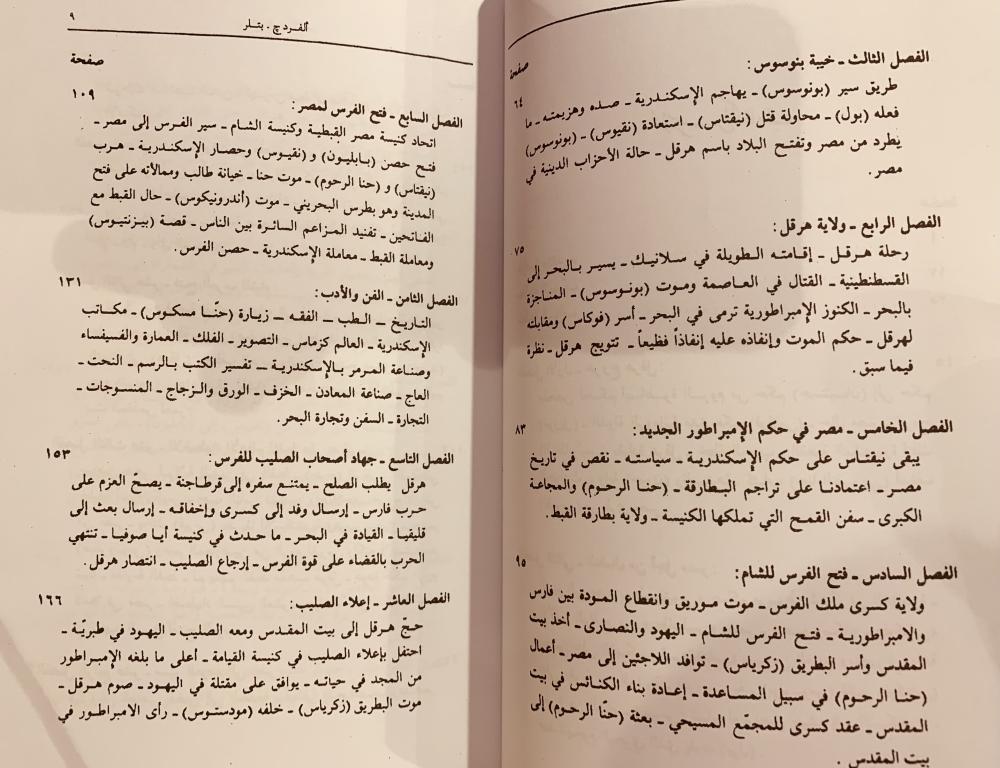 صفحة
الفصل الثالث ـ خيبة بنوسوس:
٦٤
طريق سير (بونوسوس) ـ يهاجم الإسكندرية ـ صده وهزيمته ـ ما
فعله (بول) ـ محاولة قتل (نيقتاس) ـ استعادة (نقيوس) ـ (بونوسوس)
يطرد من مصر وتفتح البلاد باسم هرقل ـ حالة الأحزاب الدينية في
مصر .
الفصل الرابع ـ ولاية هرقل:
٧٥
رحلة هرقل ـ إقامته الطويلة في سلانيك ـ يسير بالبحر إلى
القسطنطينية ـ القتال في العاصمة وموت (بونوسوس) ـ المناجزة
بالبحر ـ الكنوز الإمبراطورية ترمى في البحر ـ أسر (فوكاس) ومقابلته
لهرقل ـ حكم الموت وإنفاذه عليه إنفاذاً فظيعاً ـ تتويج هرقل ـ نظرة
فيما سبق .
الفصل الخامس ـ مصر في حكم الإمبراطور الجديد:
٨٣
يبقى نيقتاس على حكم الإسكندرية ـ سياسته ـ نقص في تاريخ
مصر ـ اعتمادنا على تراجم البطارقة ـ (حنا الرحوم) والمجاعة
الكبرى ـ سفن القمح التي تملكها الكنيسة ـ ولاية بطارقة القبط.
الفصل السادس ـ فتح الفرس للشام:
٩٥
ولاية كسرى ملك الفرس ـ موت موريق وانقطاع المودة بين فارس
والامبراطورية ـ فتح الفرس للشام ـ اليهود والنصارى ـ أخذ بيت
المقدس وأسر البطريق (زكرياس) ـ توافد اللاجئين إلى مصر ـ أعمال
(حنا الرحوم) في سبيل المساعدة ـ إعادة بناء الكنائس في بيت
المقدس ـ عقد كسرى للمجمّع المسيحي ـ بعثة (حنّا الرحوم) إلى
بيت المقدس .
الفرد ج . بتلر
٩
صفحة
الفصل السابع ـ فتح الفرس لمصر:
١٠٩
اتحاد كنيسة مصر القبطية وكنيسة الشام ـ سير الفرس إلى مصر ـ
فتح حصن (بابليون) و (نقيوس) وحصار الإسكندرية ـ هرب
(نيقتاس) و (حنا الرحوم) ـ موت حنا ـ خيانة طالب وممالأته على فتح
المدينة وهو بطرس البحريني ـ موت (أندرونيكوس) ـ حال القبط مع
الفاتحين ـ تفنيد المزاعم السائرة بين الناس ـ قصة (بيزنتيوس)
ومعاملة القبط ـ معاملة الإسكندرية ـ حصن الفرس .
الفصل الثامن ـ الفن والأدب:
١٣١
التاريخ ـ الطب ـ الفقه ـ زيارة (حنّا مسكوس) ـ مكاتب
الإسكندرية ـ العالم كزماس ـ التصوير ـ الفلك ـ العمارة والفسيفساء
وصناعة المرمر بالإسكندرية ـ تفسير الكتب بالرسم ـ النحت ـ
العاج ـ صناعة المعادن ـ الخزف ـ الورق والزجاج ـ المنسوجات ـ
التجارة ـ السفن وتجارة البحر.
الفصل التاسع ـ جهاد أصحاب الصليب للفرس:
١٥٣
هرقل يطلب الصلح ـ يمتنع سفره إلى قرطاجنة ـ يصحّ العزم على
حرب فارس ـ إرسال وفد إلى كسرى وإخفاقه ـ إرسال بعث إلى
قليقيا ـ القيادة في البحر ـ ما حدث في كنيسة أيا صوفيا ـ تنتهي
الحرب بالقضاء على قوة الفرس ـ إرجاع الصليب ـ انتصار هرقل.
الفصل العاشر ـ إعلاء الصليب:
١٦٦
حجّ هرقل إلى بيت المقدس ومعه الصليب ـ اليهود في طبريّة ـ
احتفل بإعلاء الصليب في كنيسة القيامة ـ أعلى ما بلغه الإمبراطور
من المجد في حياته ـ يوافق على مقتلة في اليهود ـ صوم هرقل ـ
موت البطريق (زكرياس) ـ خلفه (مودستوس) ـ رأى الامبراطور في